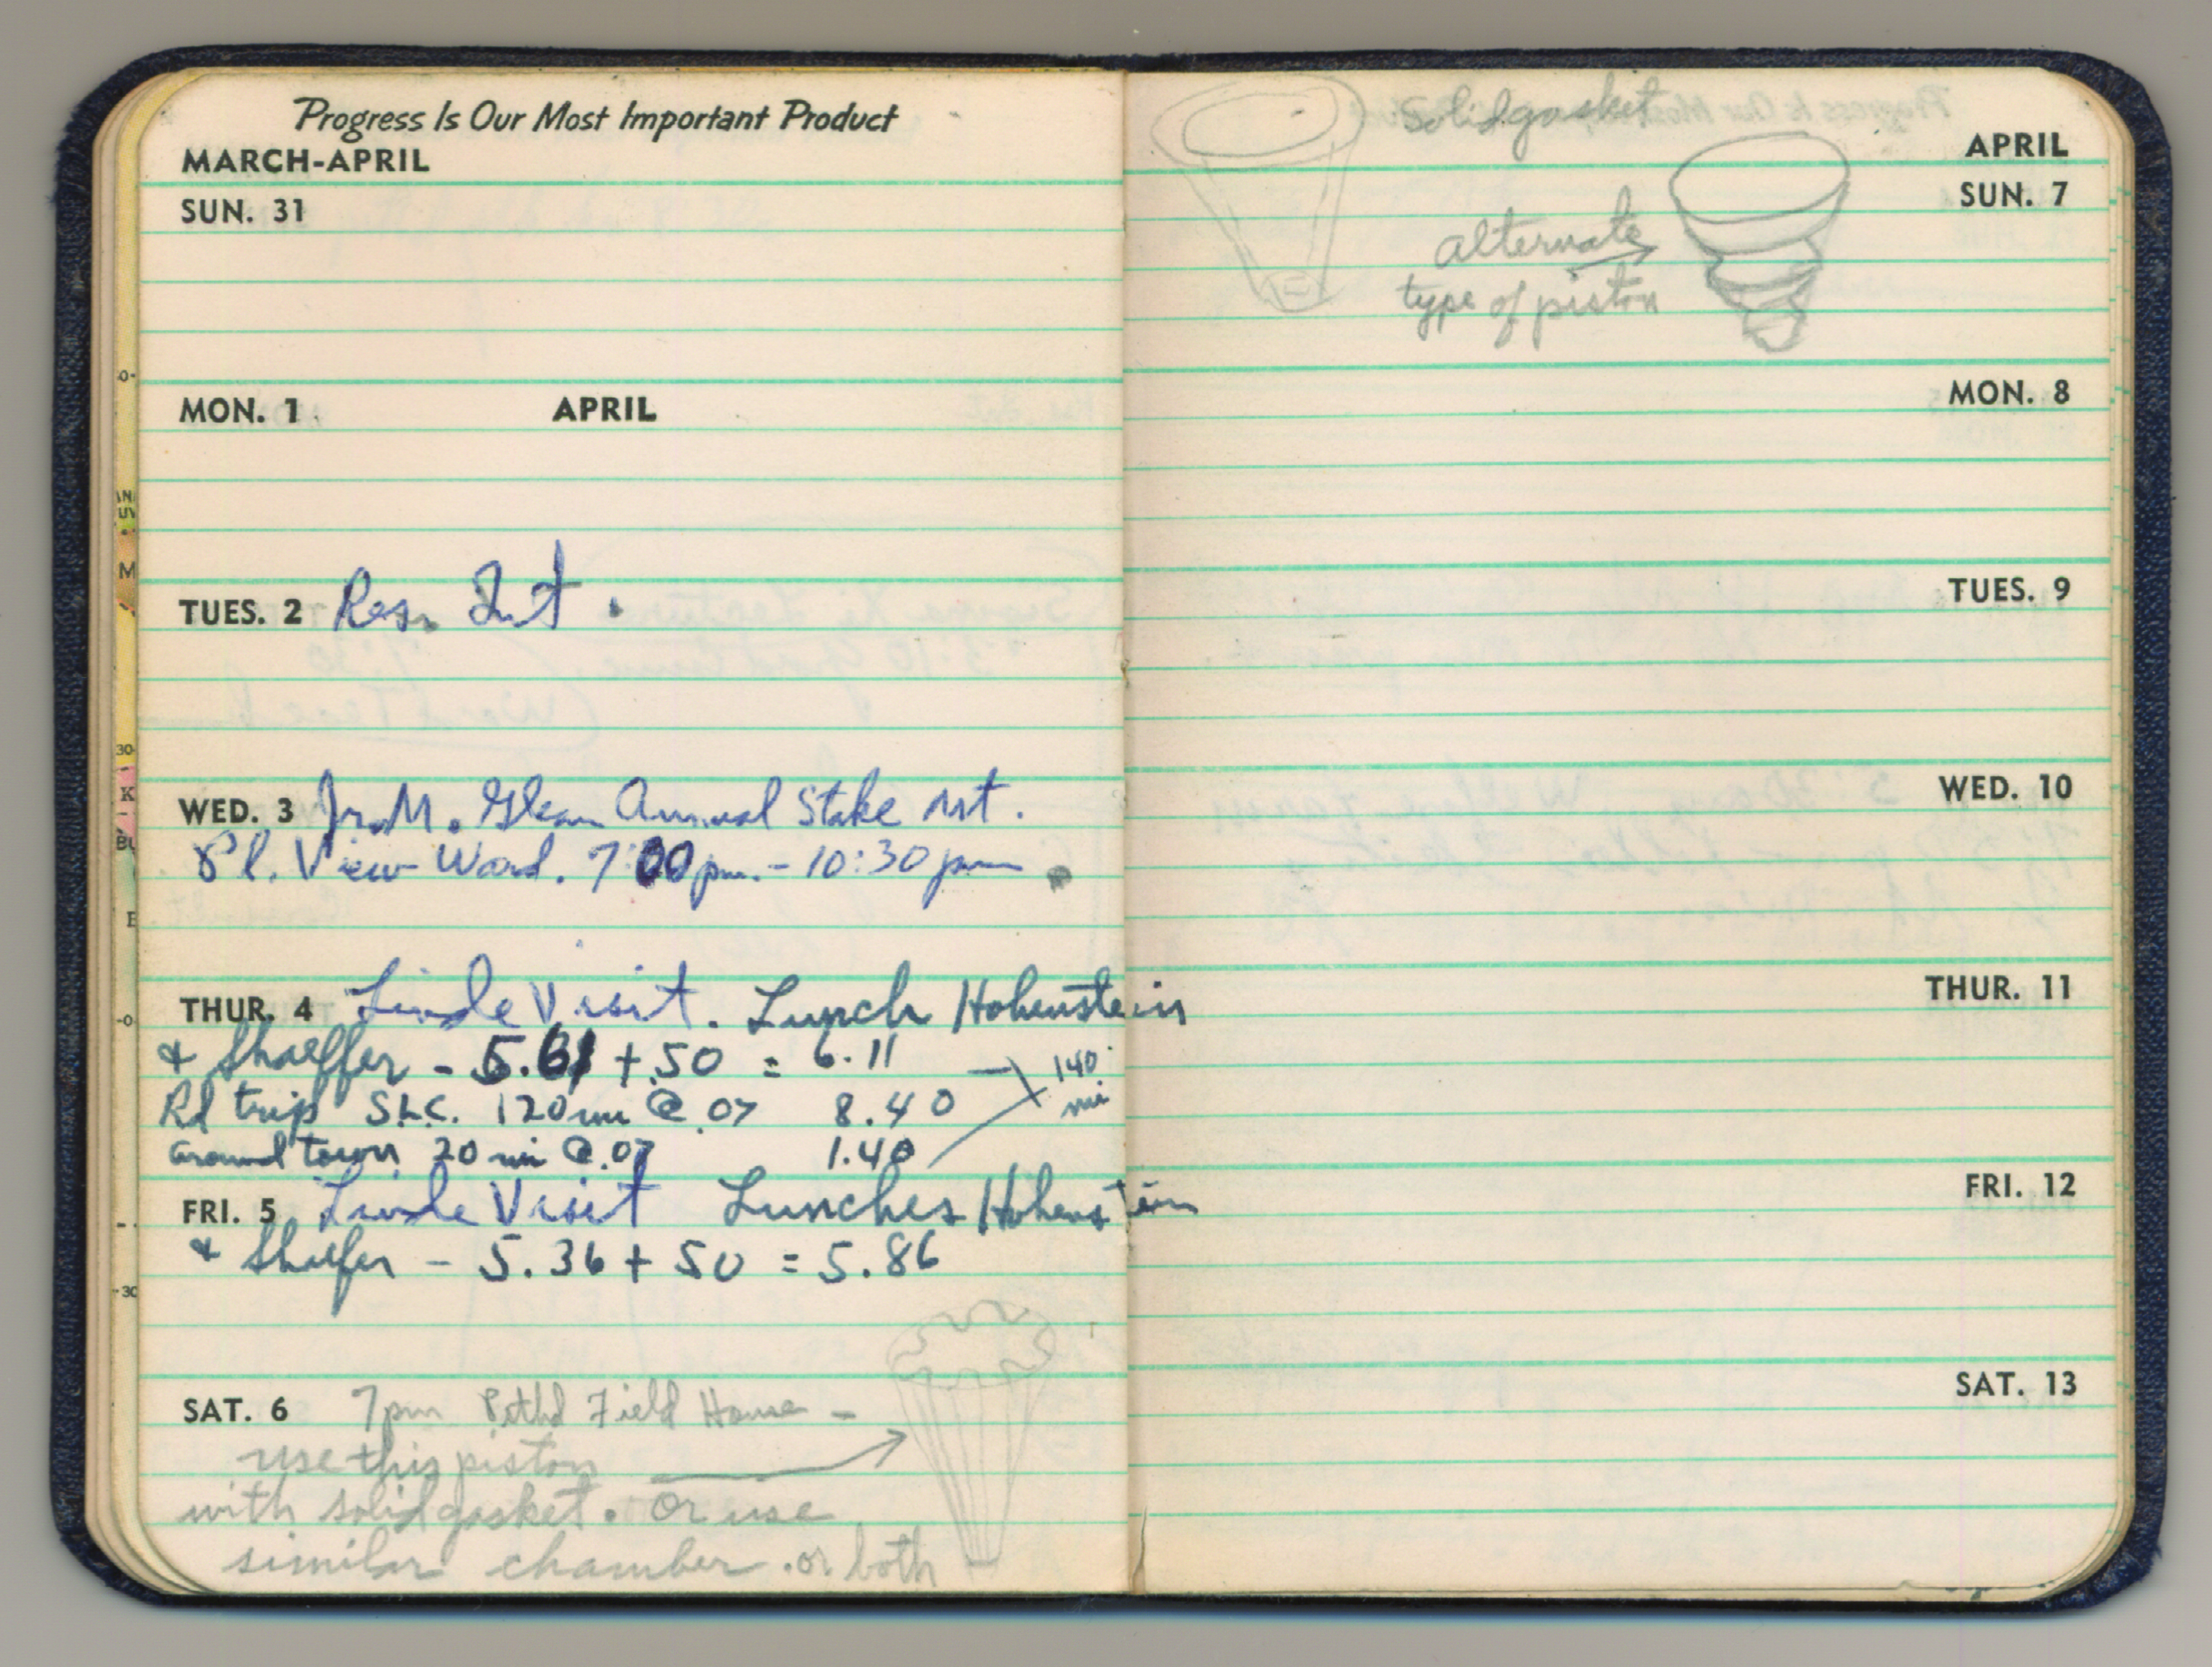 Progress Is Our Most Important Product
MARCH-APRIL
SUN. 31
MON. 1 APRIL
TUES. 2 Res. Int.
WED. 3 Jr. M. Glean Annual Stake Mt.
Pl. View Ward. 7:00 pm. - 10:30 pm
THUR. 4 Linde Visit. Lunch Hohenstein
& Shaeffer - 5.61 + .50 = 6.11
140 mi
Rd trip S.L.C. 120 mi @ .07 8.40
around town 20 mi @ .07 1.40
FRI. 5 Linde Visit Lunches Hohenstein
& Shaefer - 5.36 + 50 = 5.86
SAT. 6 7pm Field House -
use this piston
with solid gasket. or use
similar chamber. or both -
solid gasket
APRIL
SUN. 7
alternate
type of piston
MON. 8
TUES. 9
WED. 10
THUR. 11
FRI. 12
SAT. 13